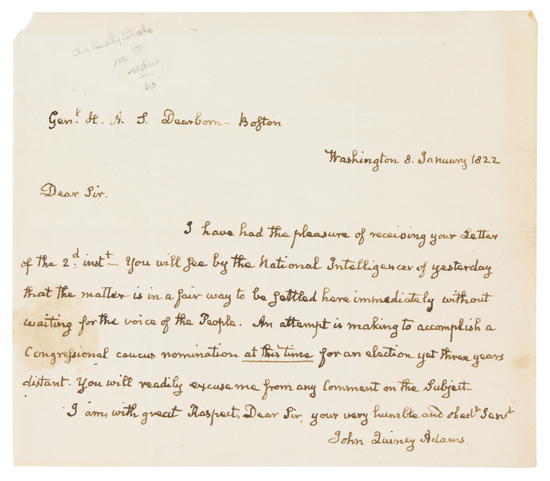 as Secy State
Genl. H. A. S. Dearborn – Boston
Washington 8. January 1822
Dear Sir.
I have had the pleasure of receiving your Letter
of the 2d. instt – You will see by the National Intelligencer of yesterday
that the matter is in a fair way to be settled here immediately without
waiting for the voice of the People. An attempt is making to accomplish a
Congressional caucus nomination at this time for an election yet three years
distant. You will readily excuse me from any Comment on the Subject–
I am, with great Respect, Dear Sir, your very humble and obedt. Servt
John Quincy Adams.